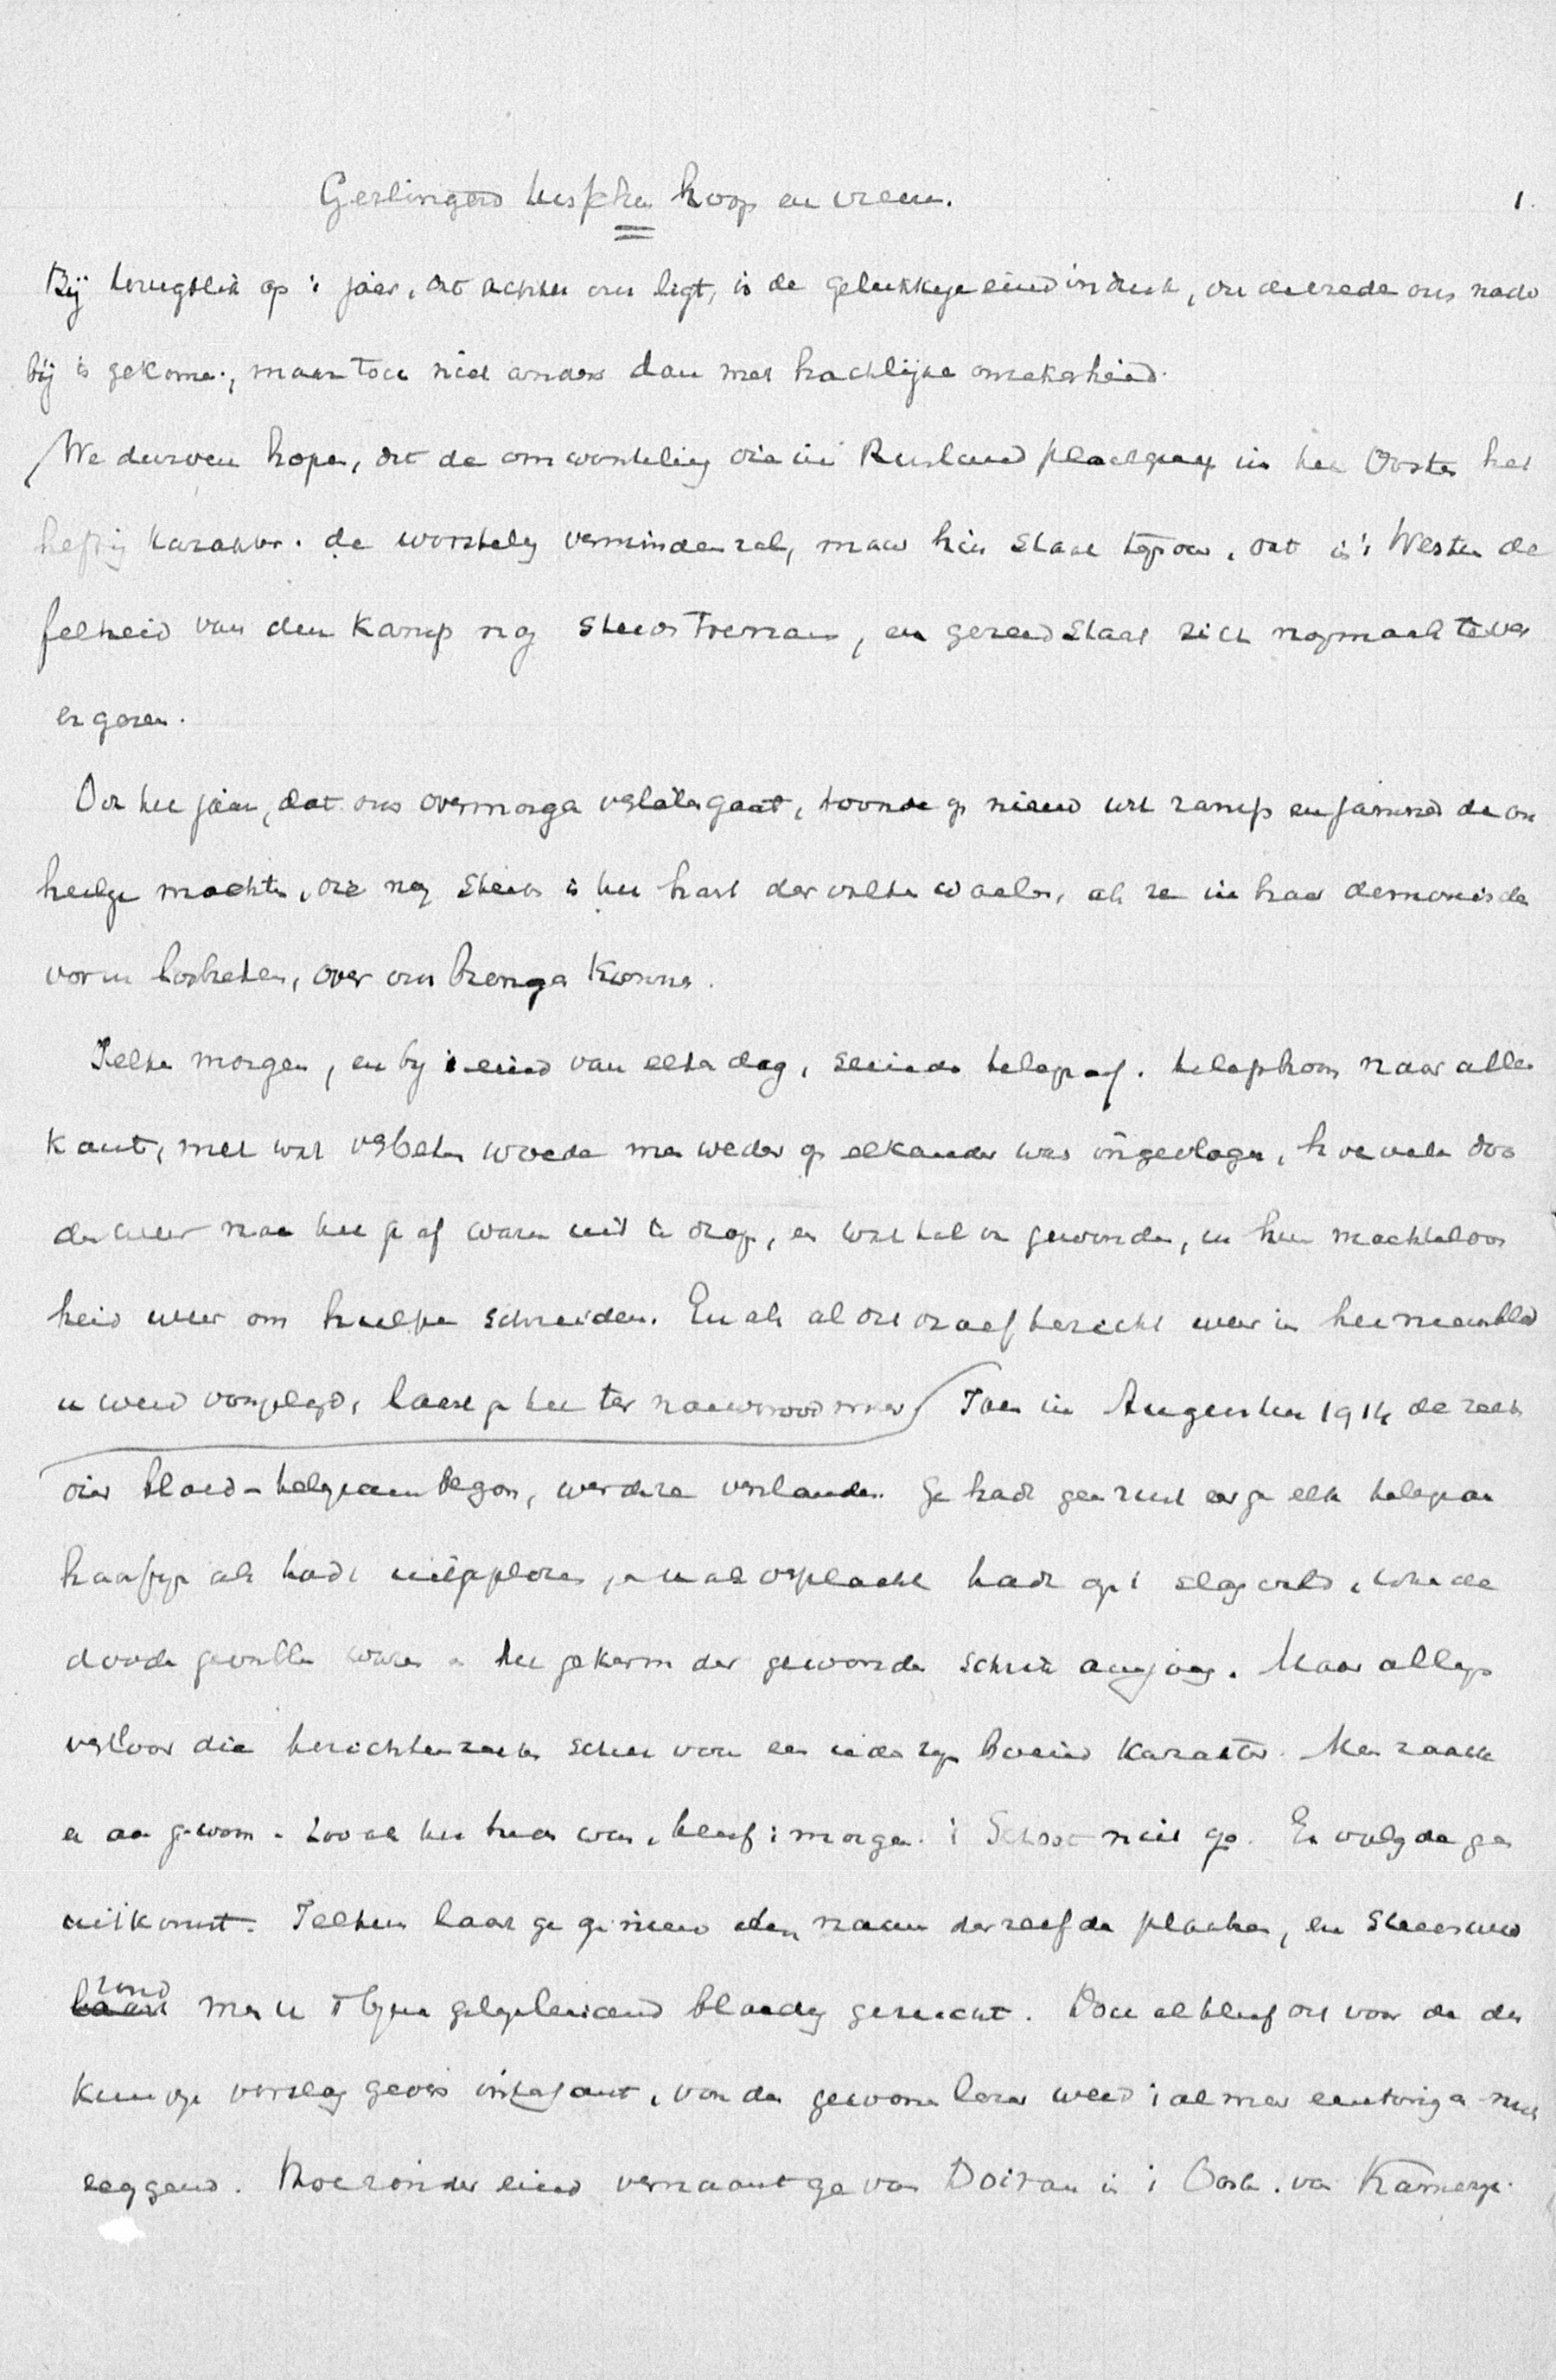 Geslingerd tusschen hoop en vrees. 1.
Bij terugblik op 't jaar, dat achter ons ligt, is de gelukkige eindindruk, dat de vrede ons nader
bij is gekomen, maar toch niet anders dan met hachlijke onzekerheid.
We durven hopen, dat de omwenteling die in Rusland plaatsgreep in het Oosten het
heftig karakter de worsteling verminderen zal, maar hier staat tegenover, dat in 't Westen de
felheid van den kamp nog steeds toenam, en gereed staat zich nogmaals te ver
ergeren.
Ook het jaar, dat ons overmorgen verlaten gaat, toonde op nieuw wat ramp en jammer de on
heilige machten, die nog steeds in het hart der volken woelen, als ze in haar demonische
vorm losbreken, over ons brengen kunnen.
Telken morgen, en bij 't eind van elken dag, seinde telegraaf en telephoon naar allen
kant, met wat verbeten woede men weder op elkander was ingevlogen, hoevele doo
den weer naar het graf waren uit te dragen, en wat tal van gewonden, in hun machteloos
heid weer om hulpe schreiden. En als al dat droef bericht weer in het nieuwsblad
u werd voorgelegd, laast ge het ter nauwernood meer. Toen in Augustus 1914 de reeks
dier bloed-telegrammen begon, werden ze verslonden. Ge hadt geen rust eer ge elk telegram
haarfijn als hadt uitgeplozen, en u als verplaatst hadt op 't slagveld, waar de
dooden gevallen waren en het gekerm der gewonden schrik aanjoeg. Maar allengs
verloor die berichtenreeks schier voor een ieder zijn boeiend karakter. Men raakte
er aan gewoon. Zooals het heden was, bleef 't morgen. 't Schoot niet op. Er volgde geen
uitkomst. Telkens laast ge op nieuw den naam derzelfde plaatsen, en steeds weer
vond men u 't bijna gelijkluidend bloedig gerucht. Dan al bleef dat voor de des
kundige verslaggevers interessant, voor den gewonen lezer werd 't al meer eentonig en niets
zeggend. Hoe zonder eind vernaamt ge van Doiran in 't Oosten, van Kamerijk